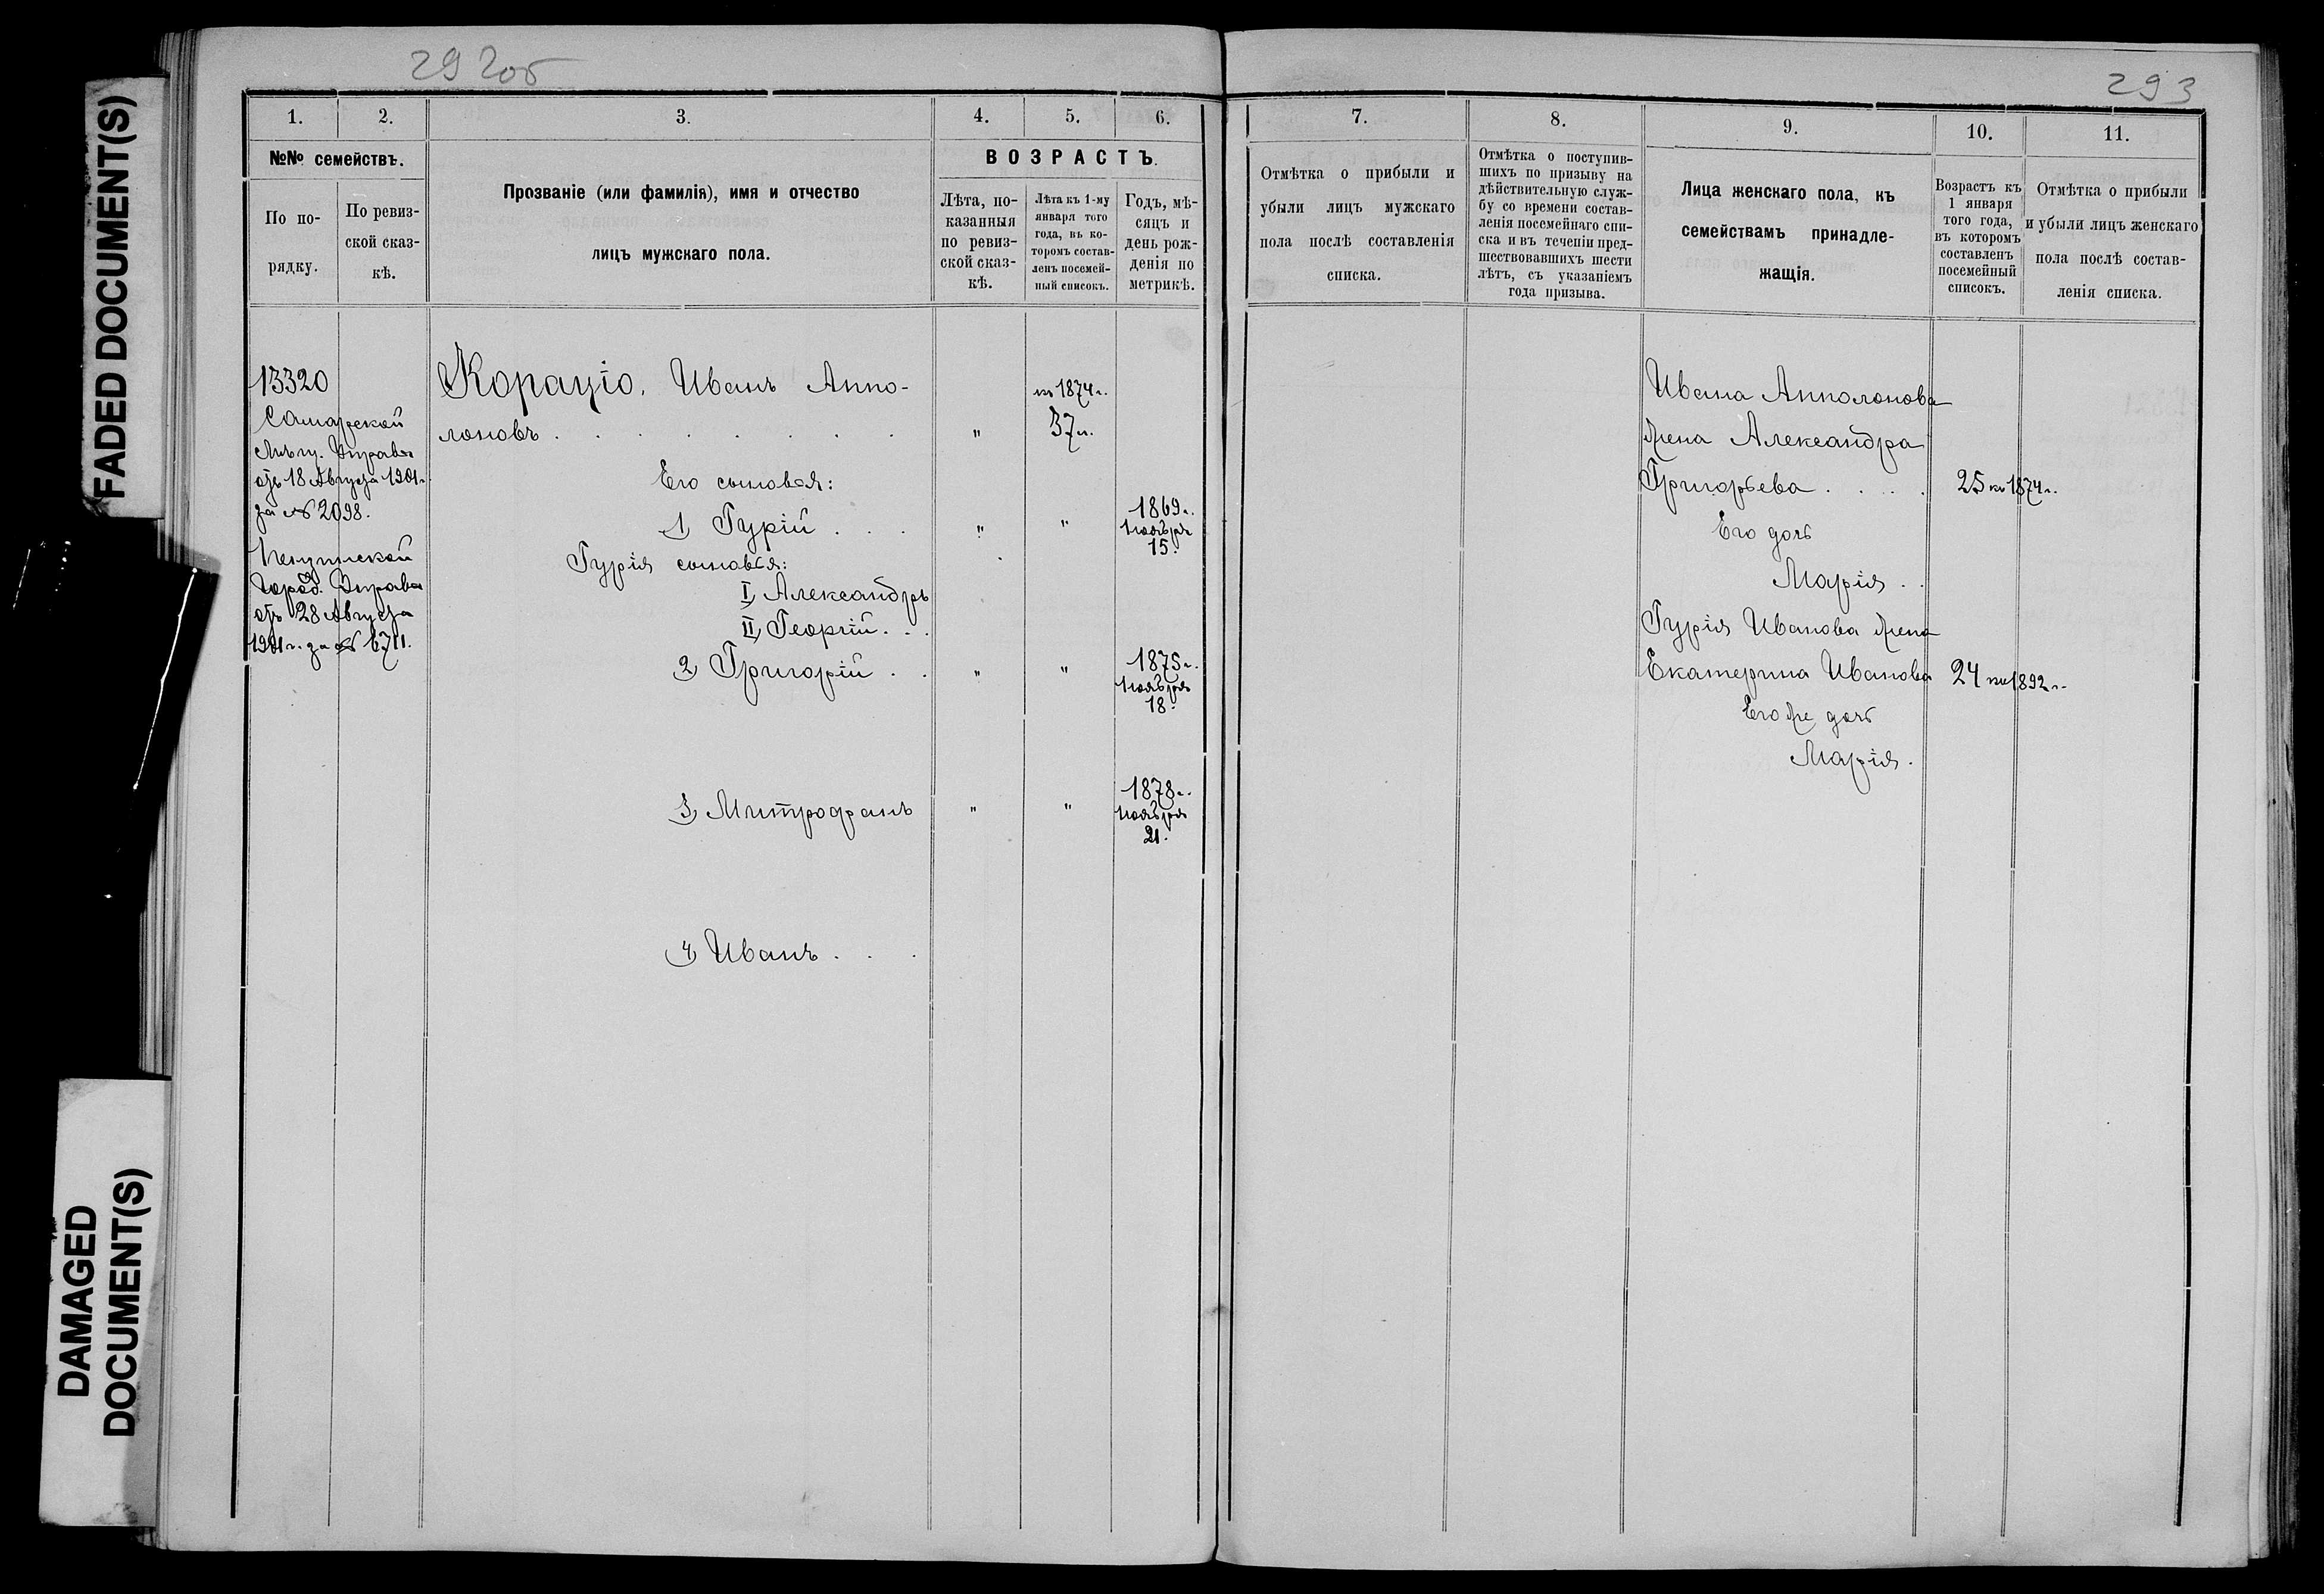 FADED DOCUMENT(S)
DAMAGED
DOCUMENT(S)
292об
1.
2.
3.
4.
5.
6.
№№ семействъ.
По по-
рядку.
По ревиз-
ской сказ-
кѣ.
Прозваніе (или фамилія), имя и отчество
лицъ мужскаго пола.
ВОЗРАСТЪ.
Лѣта, по-
казанныя
по ревиз-
ской сказ-
кѣ.
Лѣта къ 1-му
января того
года, въ ко-
торомъ состав-
ленъ посемей-
ный списокъ.
Годъ, мѣ-
сяцъ и
день рож-
денія по
метрикѣ.
13320
Самарской
Мѣщ. Управа
отъ 18 Августа 1901 г.
за № 2098.
Город. Управа
отъ 28 Августа
1901 г. за № 6711.
Корацiо, Иванъ Аппо-
лоновъ . . . . . . . "
къ 1874 г.
37 л.
Его сыновья:
1) Гурій . . . " "
1869 г.
Ноября
15.
Гурія сыновья:
I, Александръ
II, Георгій . . .
2) Григорій . . " "
1875 г.
Ноября
18.
3) Митрофанъ " "
1878 г.
Ноября
21.
4) Иванъ . . .
293
7.
8.
9.
10.
11.
Отмѣтка о прибыли и
убыли лицъ мужскаго
пола послѣ составленія
списка.
Отмѣтка о поступив-
шихъ по призыву на
дѣйствительную служ-
бу со времени состав-
ленія посемейнаго спи-
ска и въ теченіи пред-
шествовавшихъ шести
лѣтъ, съ указаніемъ
года призыва.
Лица женскаго пола, къ
семействамъ принадле-
жащія.
Возрастъ къ
1 января
того года,
въ которомъ
составленъ
посемейный
списокъ.
Отмѣтка о прибыли
и убыли лицъ женскаго
пола послѣ состав-
ленія списка.
Ивана Апполонова
жена Александра
Григорьева . . . . 25 къ 1874 г.
Его дочь
Марія . .
Гурія Иванова жена
Екатерина Иванова 24 къ 1892 г.
Его же дочь
Марія.